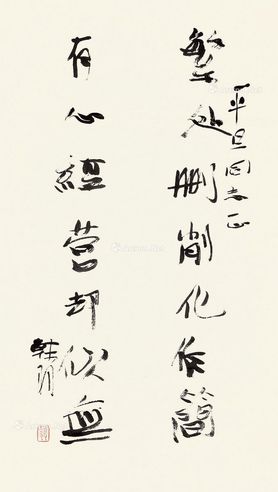 繁处删削化作簡
平旦同志正
有心經营却似無
韩羽